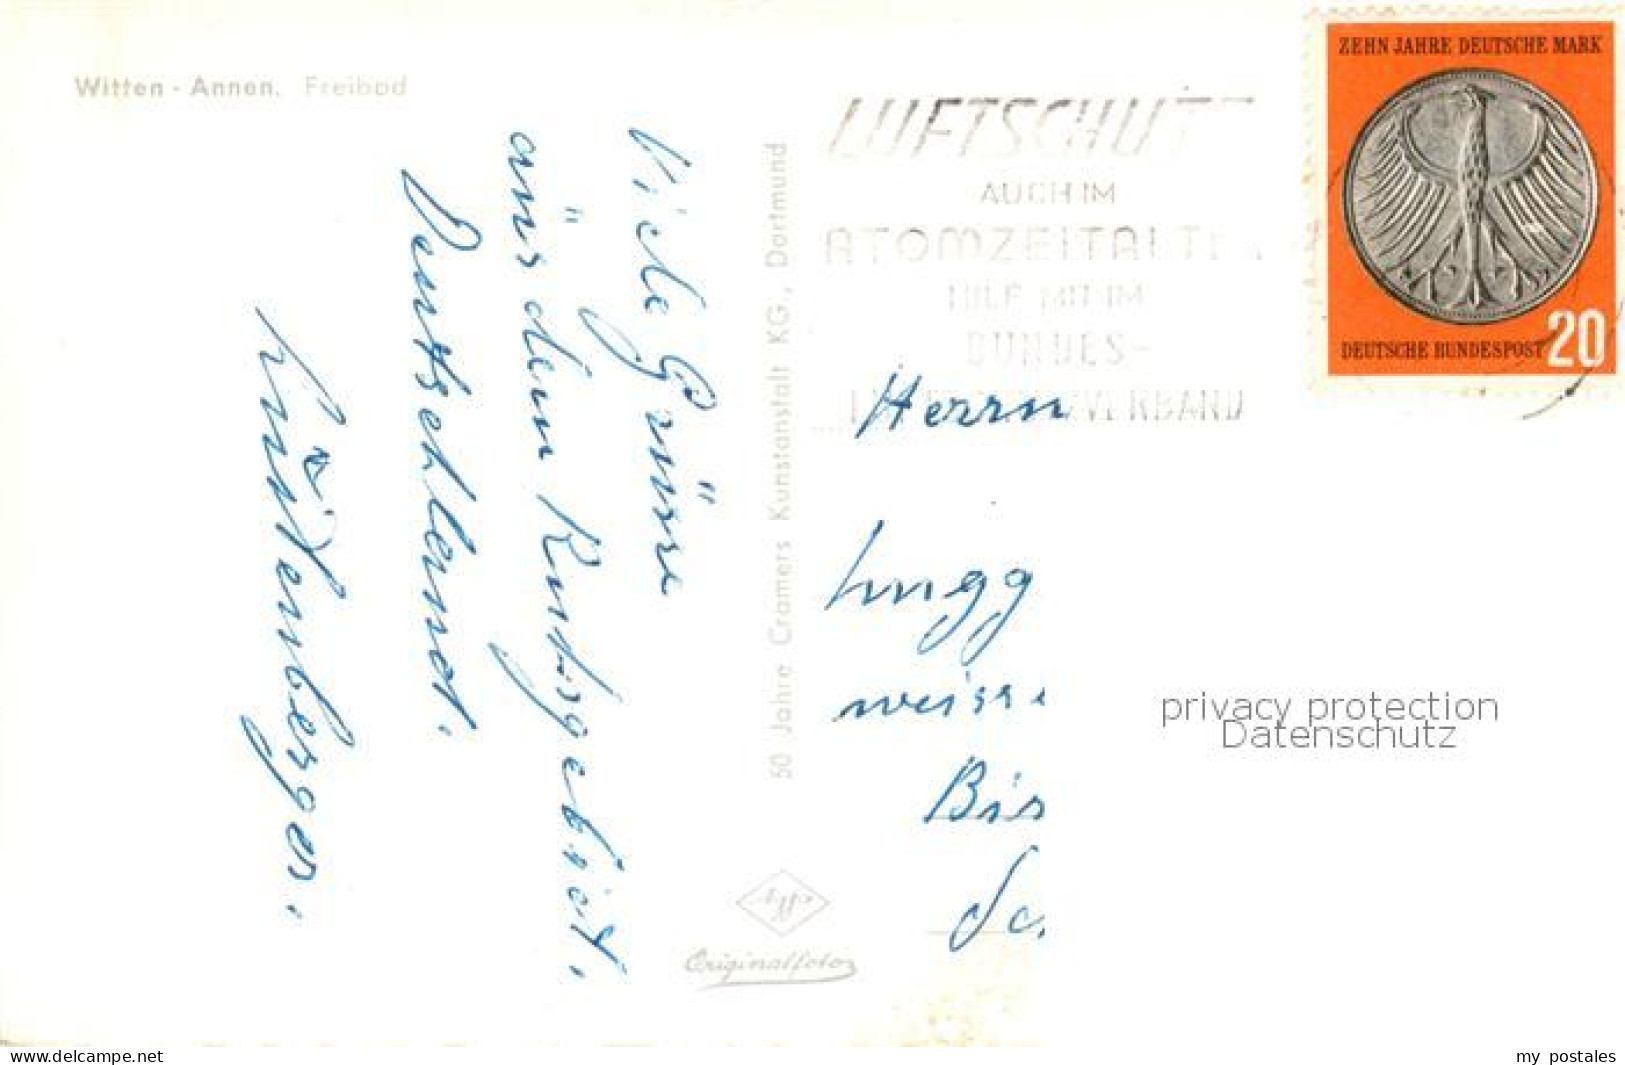 Witten - Annen. Freibad
Viele Grüsse
aus dem Ruhrgebiet,
Deutschland.
50 Jahre Cramers Kunstanstalt KG., Dortmund
Agfa
Originalfoto
LUFTSCHUT
AUCH IM
ATOMZEITALTER
HILF MIT IM
BUNDES-
VERBAND
ZEHN JAHRE DEUTSCHE MARK
DEUTSCHE BUNDESPOST 20
Herrn
privacy protection
Datenschutz
oldthing.de
my postales